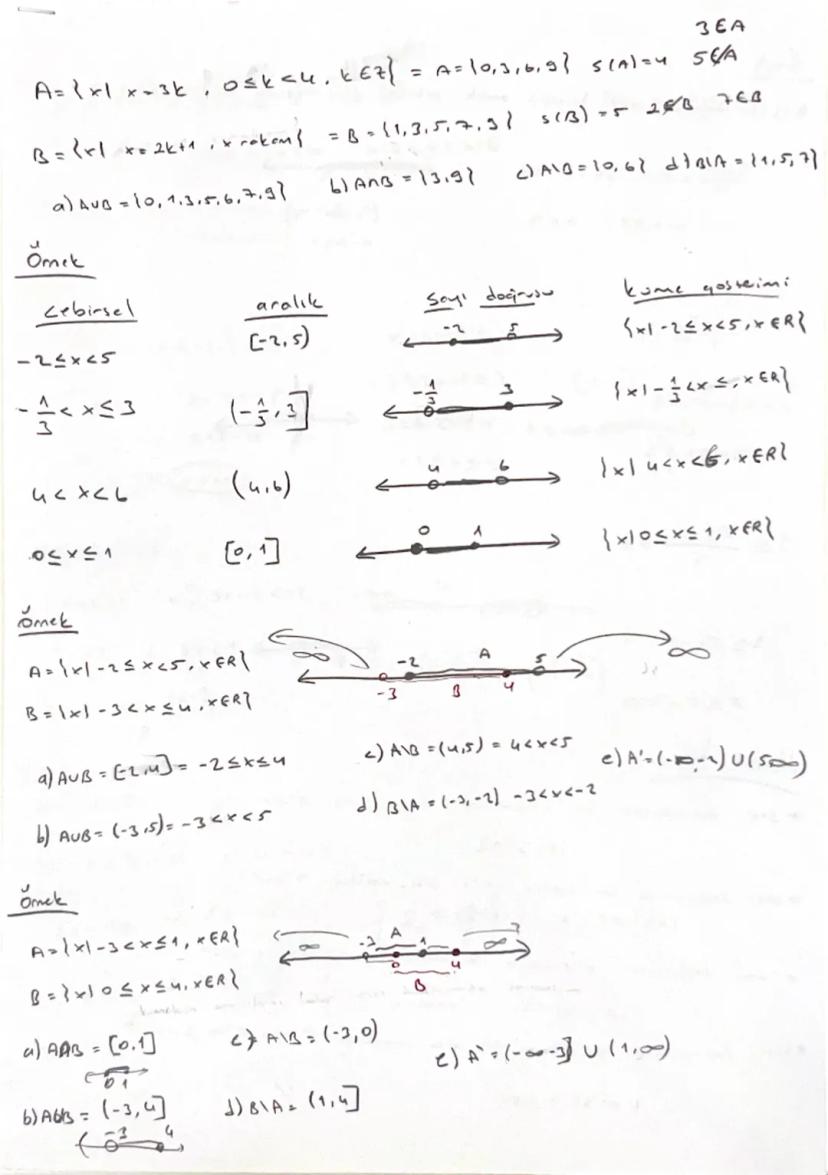 3∈A
A={x| x=3k, 0≤k<4, k∈Z} = A={0,3,6,9} s(A)=4 5∉A
B={x| x=2k+1, x rakam} = B={1,3,5,7,9} s(B)=5 2∉B 7∈B
a) A∪B={0,1,3,5,6,7,9} b) A∩B={3,9} c) A\B={0,6} d) B\A={1,5,7}
Örnek
Cebirsel aralık Sayı doğrusu küme gösterimi
-2≤x<5 [-2,5) -2 5 {x| -2≤x<5, x∈R}
-1/3<x≤3 (-1/3,3] -1/3 3 {x| -1/3<x≤, x∈R}
4<x<6 (4,6) 4 6 {x| 4<x<6, x∈R}
0≤x≤1 [0,1] 0 1 {x| 0≤x≤1, x∈R}
Örnek
A={x| -2≤x<5, x∈R} ∞ -2 A 5 ∞
B={x| -3<x≤4, x∈R} -3 B 4
a) A∪B=[-2,4]= -2≤x≤4 c) A\B=(4,5)= 4<x<5 e) A'=(-∞,-2)∪(5∞)
b) A∪B=(-3,5)= -3<x<5 d) B\A=(-3,-2) -3<x<-2
Örnek
A={x| -3<x≤1, x∈R} ∞ -3 A 1 ∞
B={x| 0≤x≤4, x∈R} 0 4 B
a) A∩B=[0,1] c) A\B=(-3,0) e) A'=(-∞-3]∪(1,∞)
0 1
b) A∪B=(-3,4] d) B\A=(1,4]
-3 4